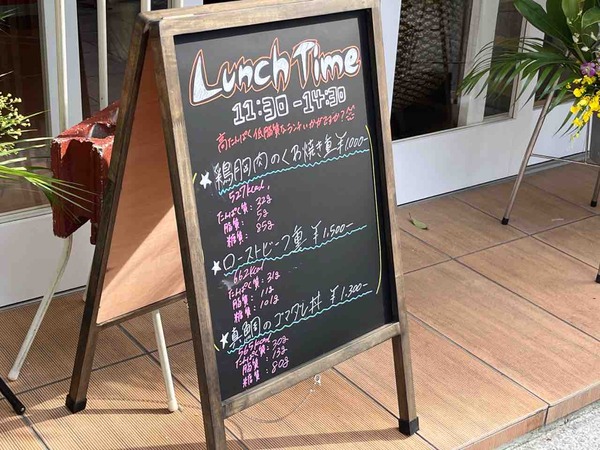 Lunch Time
11:30-14:30
高たんぱく低脂質なランチいかがですか?
☆鶏胸肉のくわ焼き重 ¥1,000-
527kcal
たんぱく質: 32g
脂質: 5g
糖質: 85g
☆ローストビーフ重 ¥1,500-
662kcal
たんぱく質: 31g
脂質: 11g
糖質: 101g
☆真鯛のゴマダレ丼 ¥1,300-
565kcal
たんぱく質: 20g
脂質: 13g
糖質: 80g